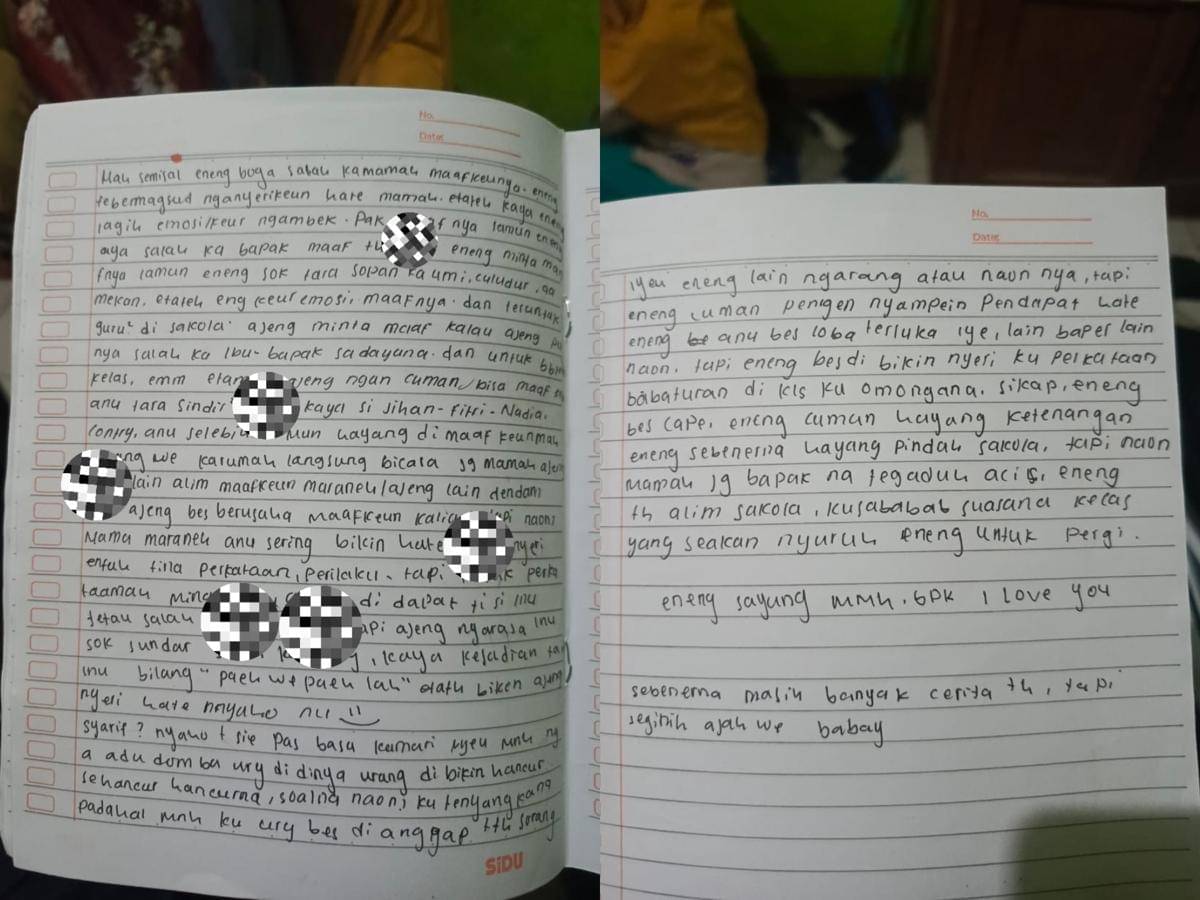 No.
Date:
Mah semisal eneng boga salah kamamah maafkeunya. eneng
tebermagsud nganyerikeun hate mamah. etateh kaya eneng
lagih emosi/keur ngambek. Pak nya lamun eneng
aya salah ka bapak maaf eneng minta maa
fnya lamun eneng sok tara sopan ka umi, culudur, ga
mekan. etateh eng keur emosi. maafnya. dan teruntuk
guru² di sakola ajeng minta maaf kalau ajeng pu
nya salah ka Ibu-bapak sadayana. dan untuk
kelas, emm ajeng ngan cuman bisa maaf
anu tara sindir kaya si Jihan-Fitri-Nadia.
Contry, anu selebi mun hayang di maaf keunmah
we karumah langsung bicara jg mamah ajeng
lain alim maafkeun maraneh/ajeng lain dendam
ajeng bes berusaha maafkeun kalian naon?
Nama maraneh anu sering bikin hate nyeri
entah tina perkataan, perilaku. tapi perka
taamah di dapat ti si Inu
tetau salah tapi ajeng ngarasa Inu
sok sundar , kaya kejadian
Inu bilang "paeh we paeh lah" etath biken ajeng
nyeri hate nnyaho nu
syarif? nyaho t sie pas basa kamari iyeu mnh ng
a adu domba ury di dinya urang di bikin hancur
sehancur hancurna, soalna naon? ku tenyangkang
padahal mnh ku ury bes di anggap tth sorang
SiDU
No.
Date:
iyeu eneng lain ngarang atau naon nya, tapi
eneng cuman pengen nyampein Pendapat hate
eneng anu bes loba terluka iye, lain baper lain
naon. tapi eneng bes di bikin nyeri ku perkataan
babaturan di kls ku omongana. sikap, eneng
bes cape, eneng cuman hayang ketenangan
eneng sebenerna hayang pindah sakola, tapi naon
mamah jg bapak na tegaduh acis, eneng
th alim sakola, kusababab suasana kelas
yang seakan nyuruh eneng untuk pergi.
eneng sayang mmh. bpk I love you
sebenerna masih banyak cerita th, tapi
seginih ajah we babay